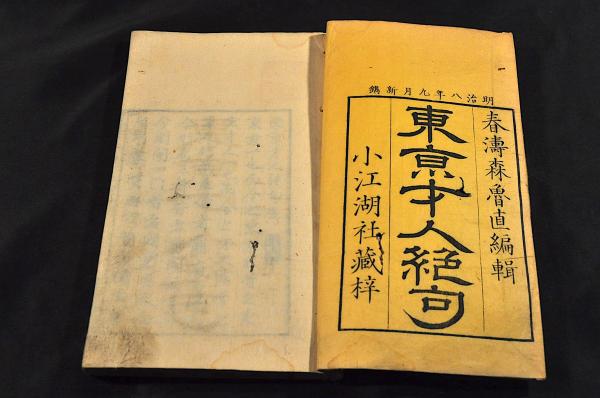 明治八年九月新鐫
春濤森魯直編輯
東京才人絕句
小江湖社藏梓